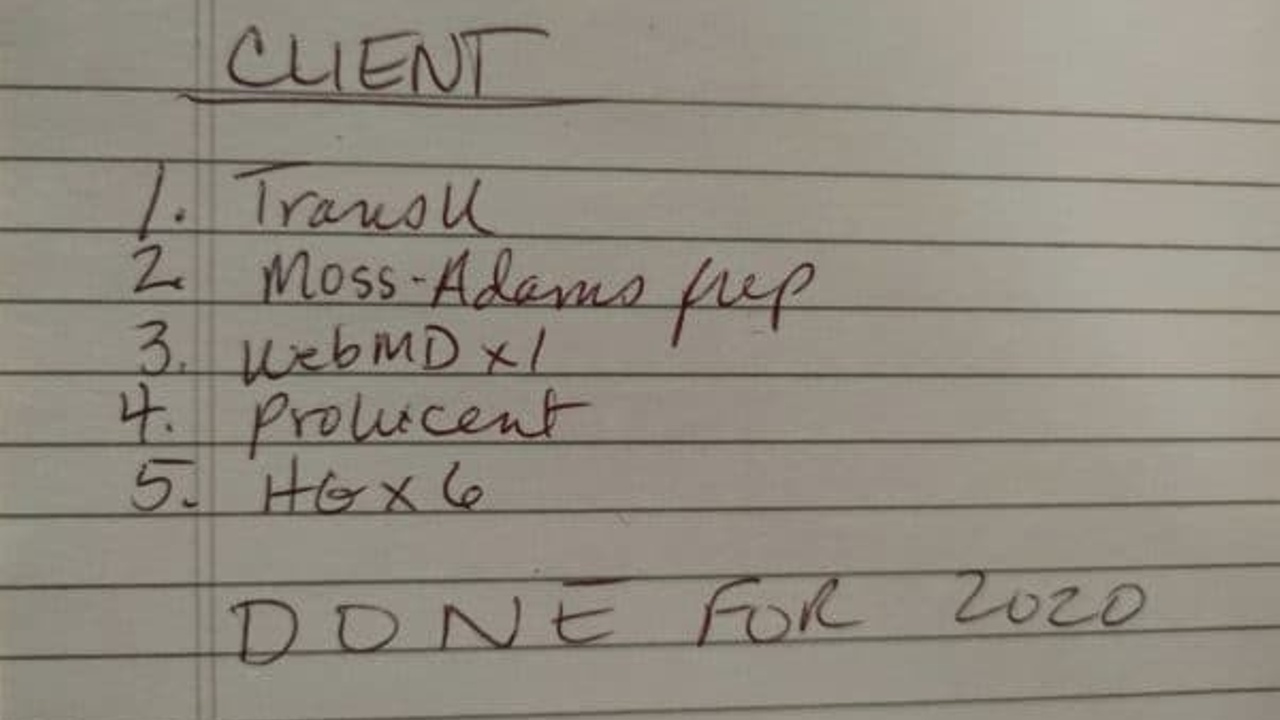 CLIENT
1. TransU
2. Moss-Adams prep
3. WebMD x 1
4. Prolucent
5. HG x 6
DONE FOR 2020